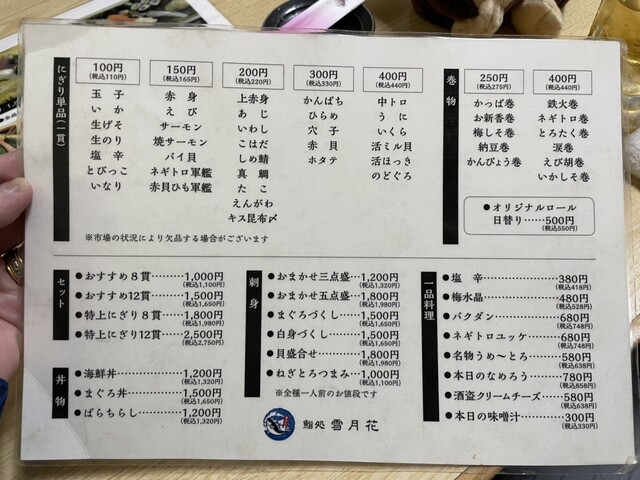 にぎり単品(一貫)
100円
(税込110円)
玉子
いか
生げそ
生のり
塩辛
とびっこ
いなり
150円
(税込165円)
赤身
えび
サーモン
焼サーモン
バイ貝
ネギトロ軍艦
赤貝ひも軍艦
200円
(税込220円)
上赤身
あじ
いわし
こはだ
しめ鯖
真鯛
たこ
えんがわ
キス昆布〆
300円
(税込330円)
かんぱち
ひらめ
穴子
赤貝
ホタテ
400円
(税込440円)
中トロ
うに
いくら
活ミル貝
活ほっき
のどぐろ
※市場の状況により欠品する場合がございます
巻物
250円
(税込275円)
かっぱ巻
お新香巻
梅しそ巻
納豆巻
かんぴょう巻
400円
(税込440円)
鉄火巻
ネギトロ巻
とろたく巻
涙巻
えび胡巻
いかしそ巻
●オリジナルロール
日替り……500円
(税込550円)
セット
●おすすめ8貫………1,000円
(税込1,100円)
●おすすめ12貫………1,500円
(税込1,650円)
●特上にぎり8貫……1,800円
(税込1,980円)
●特上にぎり12貫……2,500円
(税込2,750円)
丼物
●海鮮丼………………1,200円
(税込1,320円)
●まぐろ丼……………1,500円
(税込1,650円)
●ばらちらし…………1,200円
(税込1,320円)
刺身
●おまかせ三点盛…1,200円
(税込1,320円)
●おまかせ五点盛…1,800円
(税込1,980円)
●まぐろづくし……1,500円
(税込1,650円)
●白身づくし………1,500円
(税込1,650円)
●貝盛合せ…………1,800円
(税込1,980円)
●ねぎとろつまみ…1,000円
(税込1,100円)
※全種一人前のお値段です
一品料理
●塩辛…………………380円
(税込418円)
●梅水晶………………480円
(税込528円)
●バクダン……………680円
(税込748円)
●ネギトロユッケ……680円
(税込748円)
●名物うめ〜とろ……580円
(税込638円)
●本日のなめろう……780円
(税込858円)
●酒盗クリームチーズ…580円
(税込638円)
●本日の味噌汁………300円
(税込330円)
鮨処 雪月花